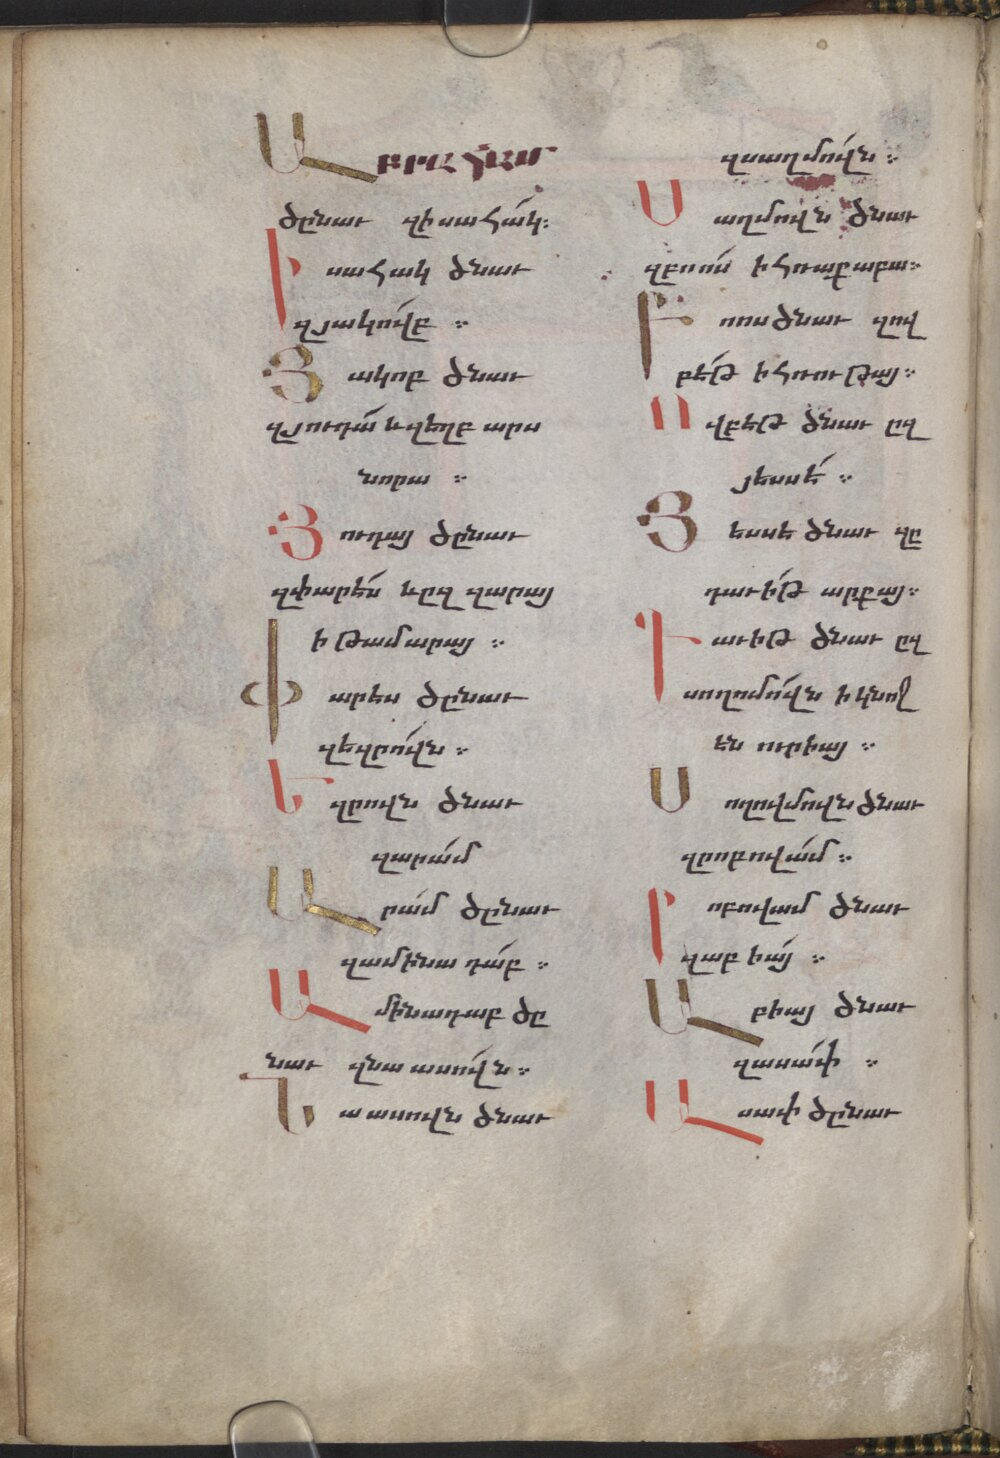 Աբրահամ
ծընաւ զիսահակ։
Իսահակ ծնաւ
զյակովբ ։
Յակոբ ծնաւ
զյուդա և զեղբարս
նորա ։
Յուդայ ծընաւ
զփարէս և ըզ զարայ
ի թամարայ ։
Փարես ծընաւ
զեզրովն ։
Եզրովն ծնաւ
զարամ
Արամ ծընաւ
զամինադաբ ։
Ամինադաբ ծը
նաւ զնաասովն ։
Նաասովն ծնաւ
զսաղմովն ։
Սաղմովն ծնաւ
զբոոս ի հռաքաբա։
Բոոս ծնաւ զով
բէթ ի հռութայ։
Ովբեթ ծնաւ ըզ
յեսսէ ։
Յեսսե ծնաւ զը
դաւիթ արքայ։
Դաւիթ ծնաւ ըզ
սողոմովն ի կնոջ
էն ուրիայ ։
Սողովմովն ծնաւ
զըոբովամ ։
Րոբովամ ծնաւ
զաբիայ ։
Աբիայ ծնաւ
զասափ ։
Ասափ ծընաւ